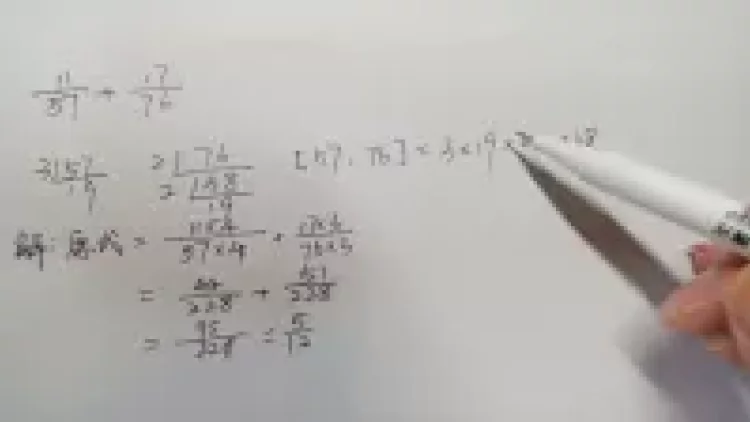 11/57 + 17/76
3|57 2|76 [57, 76] = 3×19×
19 2|38
19
解：原式 = 11×4/57×4 + 17×3/76×3
= 44/228 + 51/228
= 95/228 = 5/12